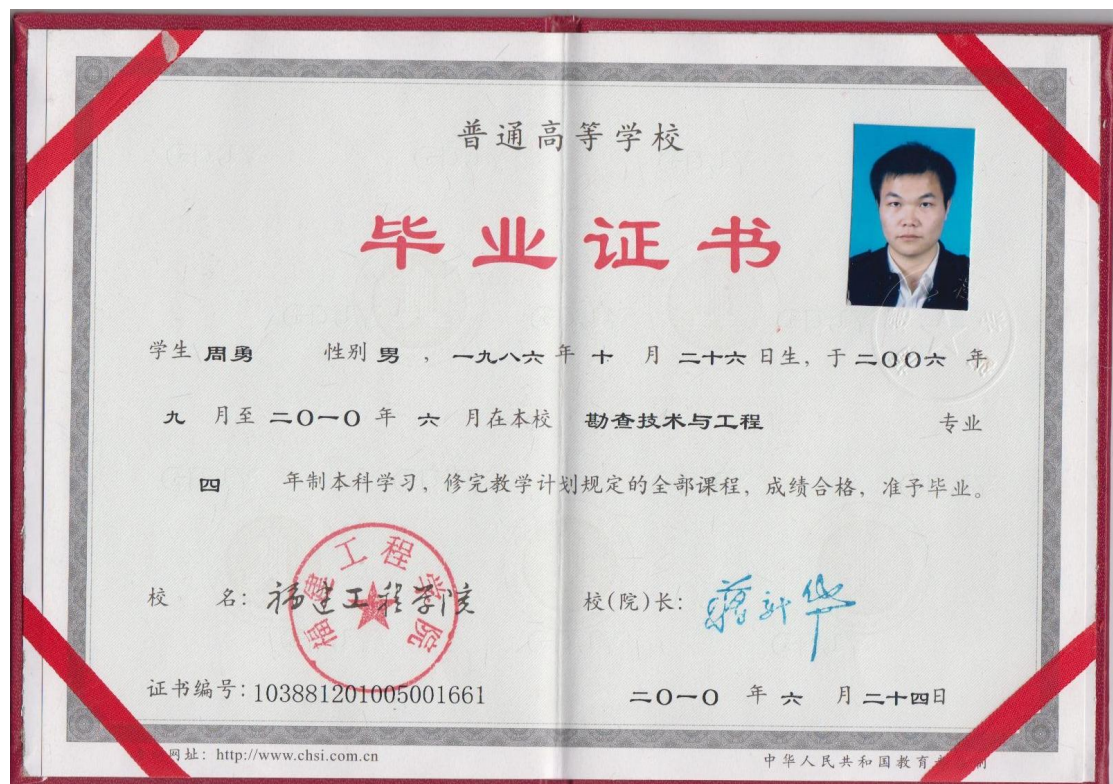 普通高等学校
毕业证书
学生 周勇 性别 男 ，一九八六 年 十 月 二十六 日生，于 二〇〇六 年
九 月至 二〇一〇 年 六 月在本校 勘查技术与工程 专业
四 年制本科学习，修完教学计划规定的全部课程，成绩合格，准予毕业。
福建工程学院
校 名：福建工程学院 校(院)长：蒋新华
证书编号：103881201005001661 二〇一〇 年 六 月 二十四日
网址：http://www.chsi.com.cn 中华人民共和国教育